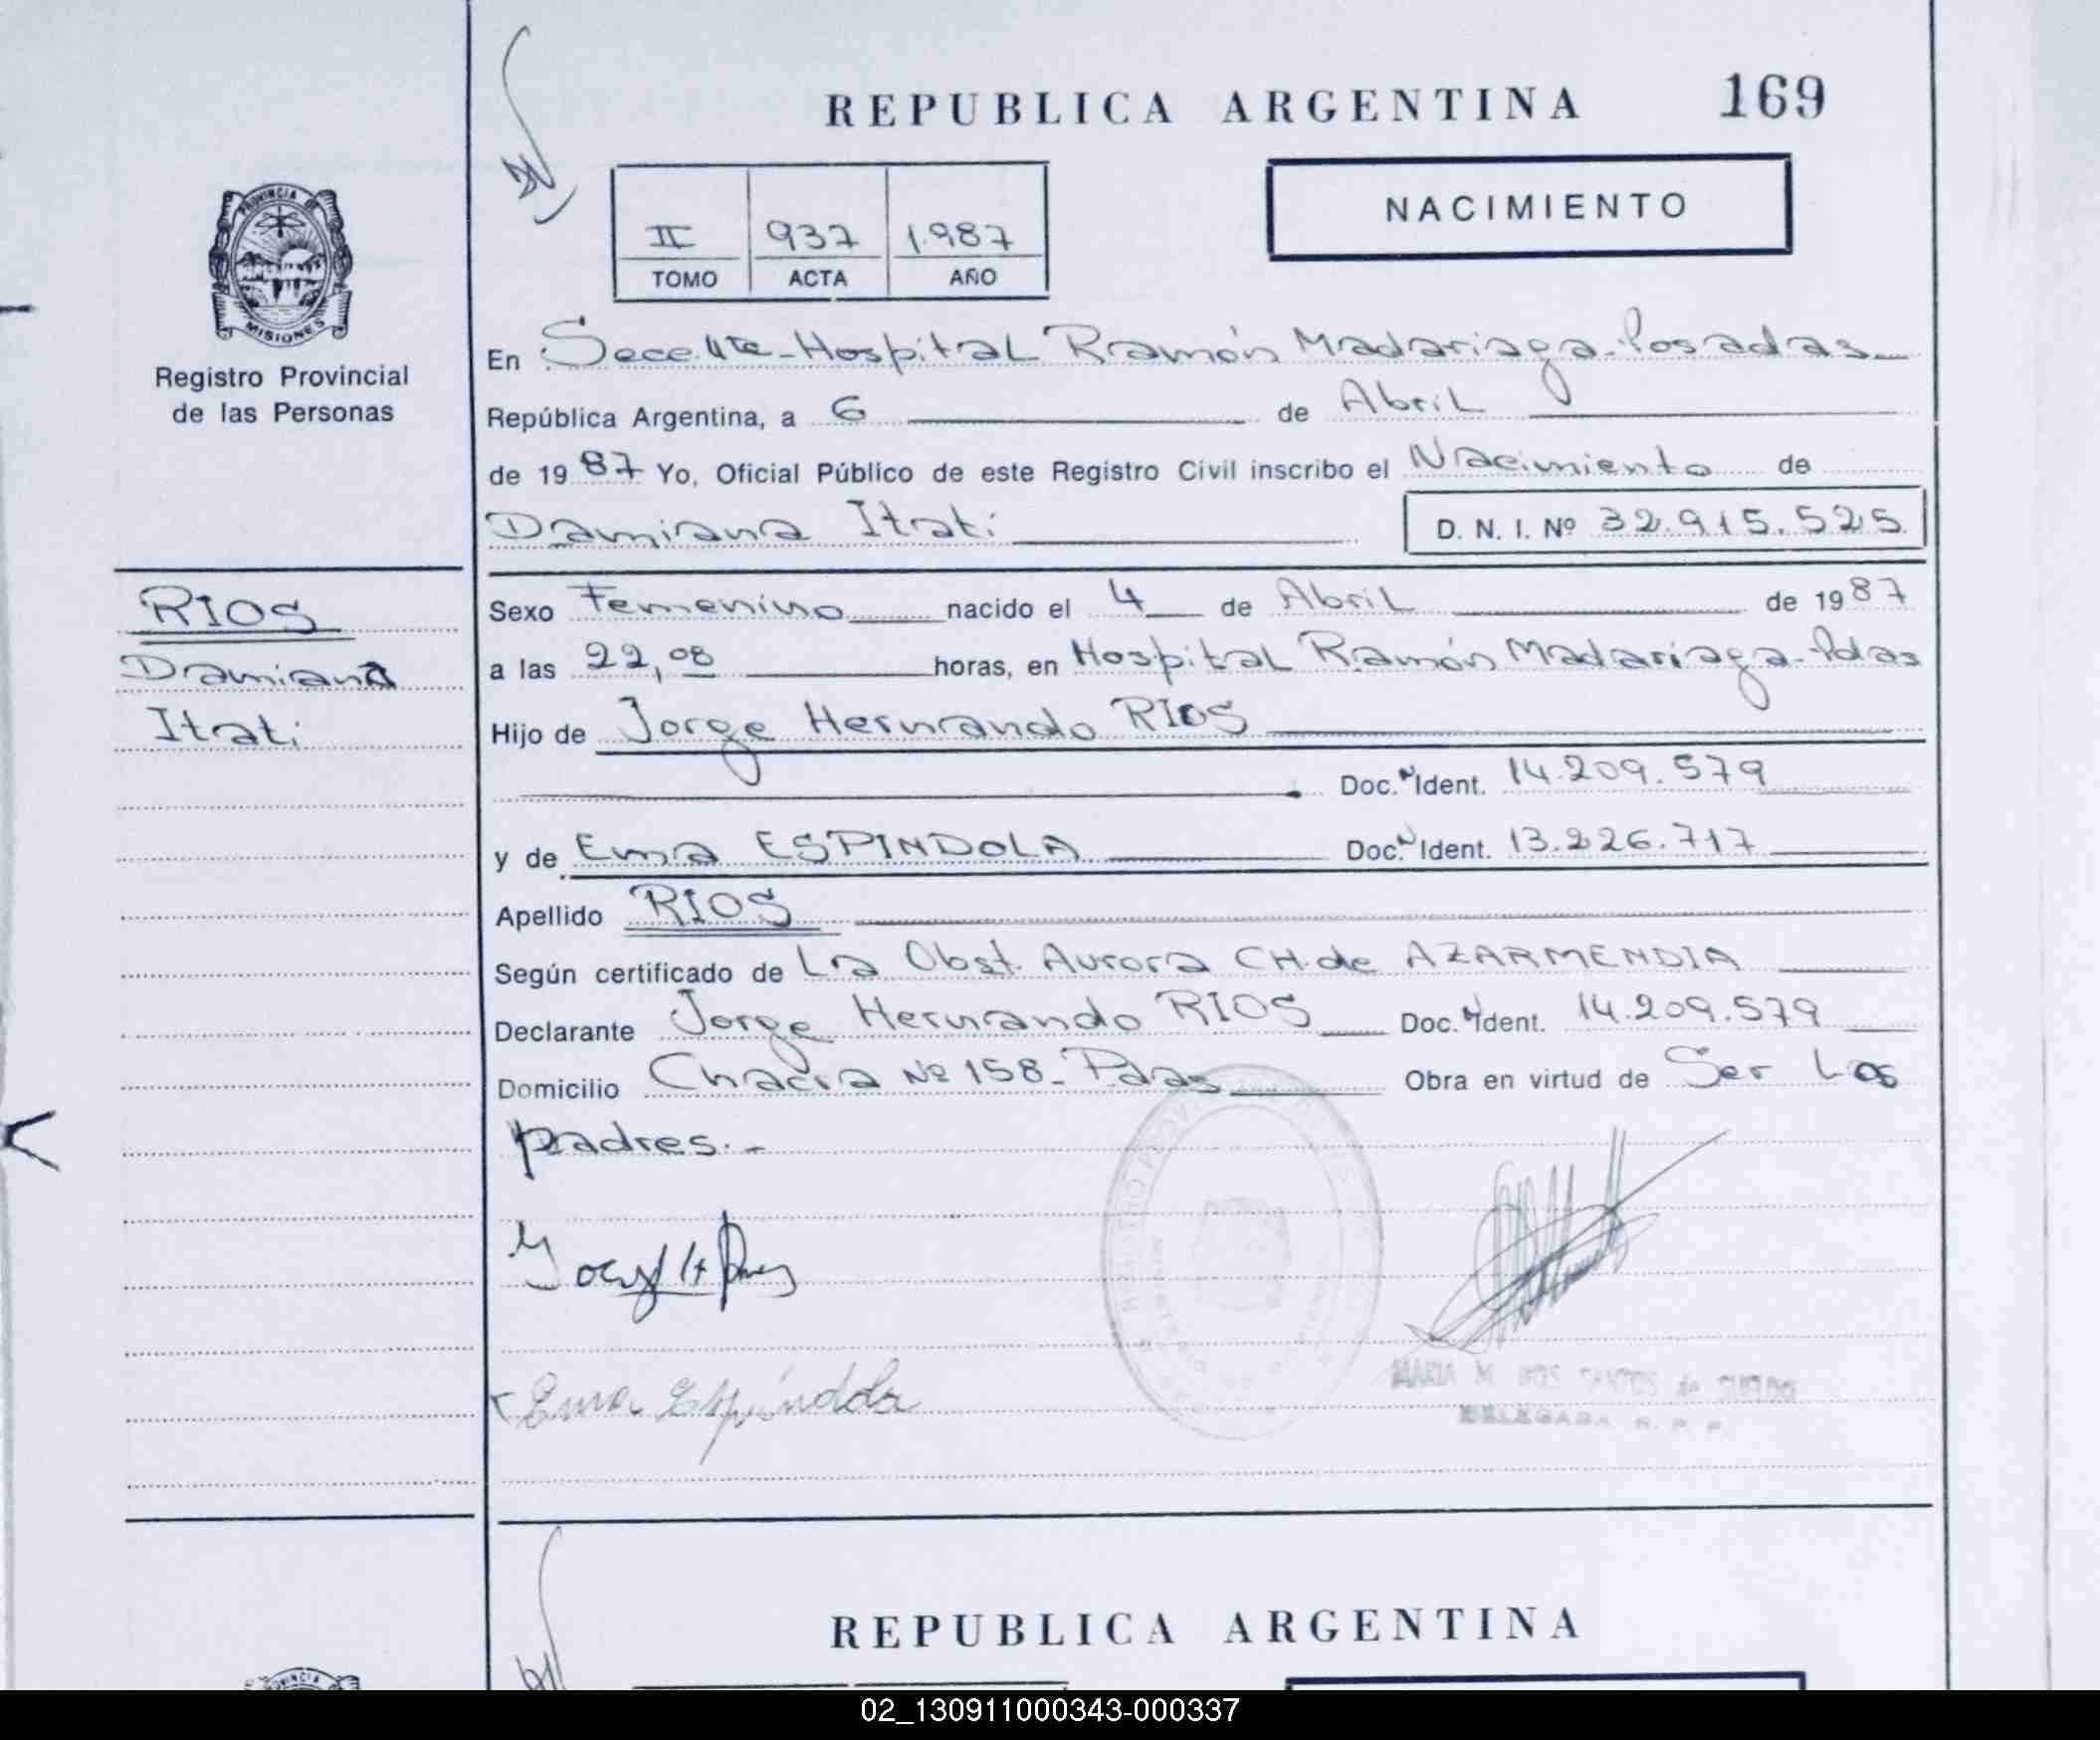 REPUBLICA ARGENTINA 169
PROVINCIA DE
MISIONES
Registro Provincial
de las Personas
II 937 1.987
TOMO ACTA AÑO
NACIMIENTO
En Secc. 4ta - Hospital Ramón Madariaga - Posadas
República Argentina, a 6 de Abril
de 19 87 Yo, Oficial Público de este Registro Civil inscribo el Nacimiento de
Damiana Itatí D. N. I. Nº 32.915.525
RIOS
Damiana
Itatí
Sexo Femenino nacido el 4 de Abril de 19 87
a las 22,08 horas, en Hospital Ramón Madariaga - Pdas
Hijo de Jorge Hernando RIOS
Doc. N Ident. 14.209.579
y de Ema ESPINDOLA Doc. N Ident. 13.226.717
Apellido RIOS
Según certificado de La Obst. Aurora CH. de AZARMENDIA
Declarante Jorge Hernando RIOS Doc. N Ident. 14.209.579
Domicilio Chacra Nº 158 - Pdas Obra en virtud de Ser Los
padres. -
Ema Espíndola
MARIA M. DOS SANTOS de
DELEGADA R. P. P.
REPUBLICA ARGENTINA
02_130911000343-000337